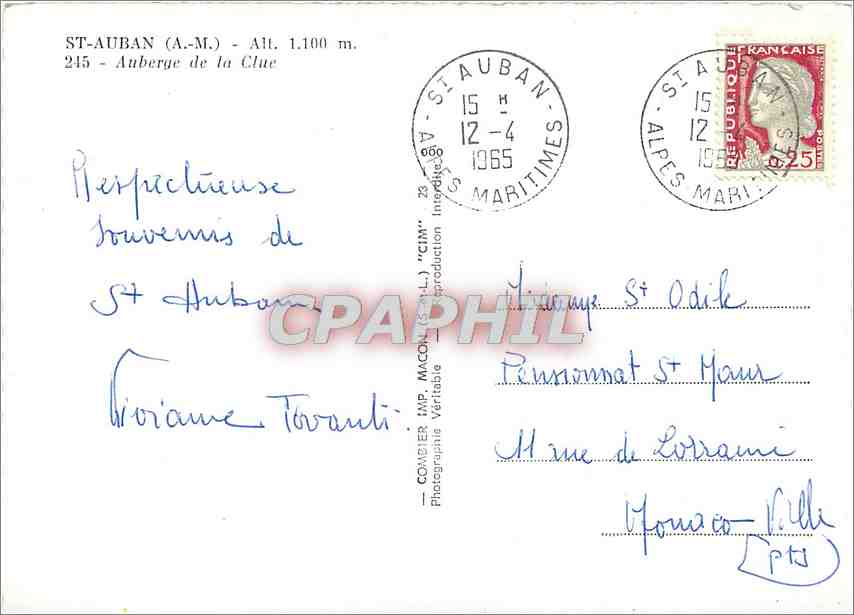 ST-AUBAN (A.-M.) - Alt. 1.100 m.
245 - Auberge de la Clue
ST AUBAN
15 H
12 -4
1965
ALPES MARITIMES
ST AUBAN
15
12 -4
196
ALPES MARITIMES
REPUBLIQUE FRANÇAISE
POSTES
0,25
Respectueuse
souvenirs de
St Aubann
Viviane Tovanti.
— COMBIER IMP. MACON (S.-et-L.) "CIM" 23 — 000
Photographie Véritable — Reproduction Interdite
CPAPHIL
St Odile
Pensionnat St Maur
11 rue de Lorraine
Monaco-Ville